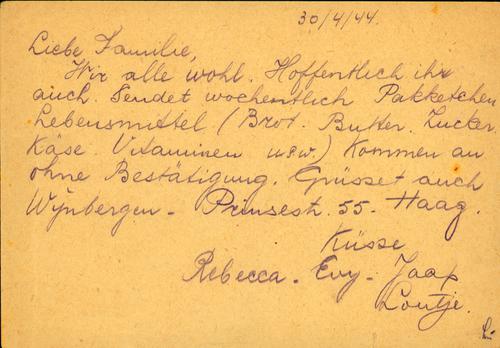 30/4/44.
Liebe Familie,
Wir alle wohl. Hoffentlich ihr
auch. Sendet wochentlich Pakketchen
Lebensmittel (Brot. Butter. Zucker
Käse. Vitaminen usw.) Kommen an
ohne Bestätigung. Grüsset auch
Wijnbergen - Prinsestr. 55 - Haag.
Küsse
Rebecca - Evy - Jaap
Loutje.